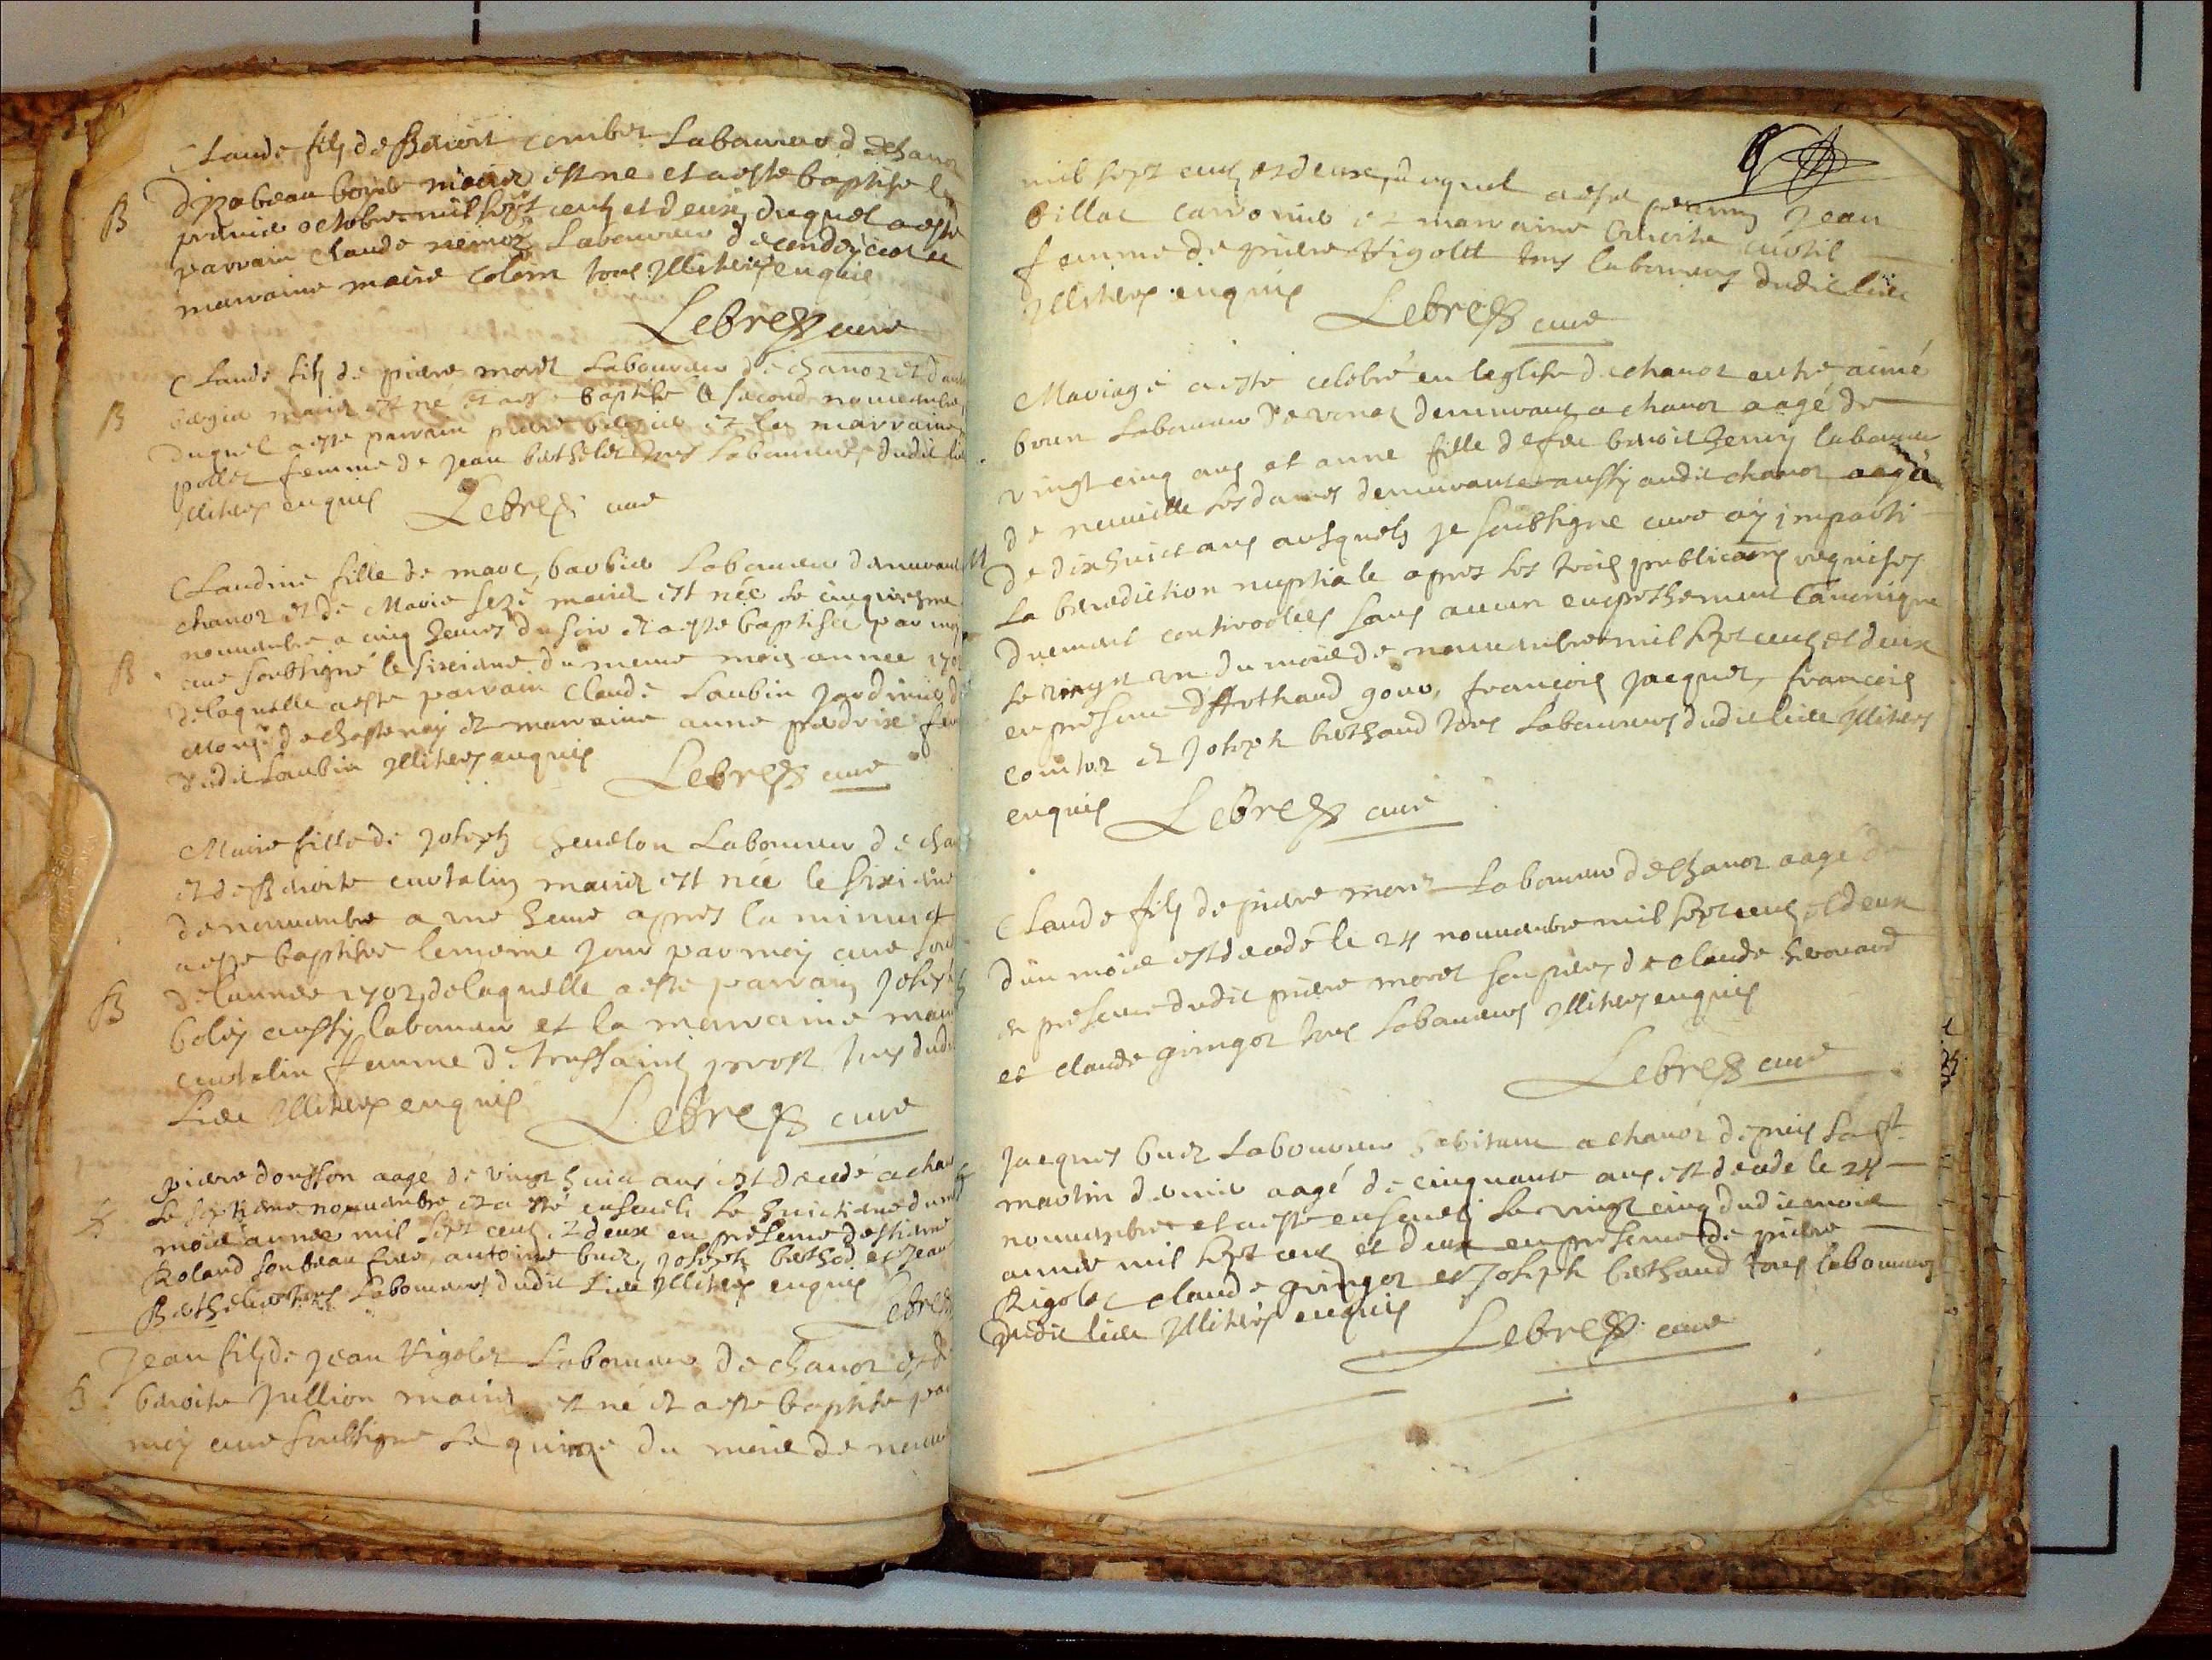 Claude fils de Benoit combet Laboureur de chanoz
B
premier octobre mil sept cens et deux, duquel a esté
parrain Claude Laboureur de et
marraine marie Colom tous illiteres enquis
Lebref cure
Claude fils de piere moret Laboureur de chanoz et d
B
mariez est né et a esté baptisé le second novembre,
duquel a esté parrain piere et la marraine
femme de Jean berthelet tous Laboureurs dudit lieu
illiteres enquis Lebref cure
Claudine fille de marc barbier Laboureur demeurant
chanoz et de Marie mariez est née le cinquiesme
novembre a cinq heures du soir et a esté baptisée par moy
B cure soubsigné le sixieme du meme mois année 170
de laquelle a esté parrain Claude Laubin Jardinier de
Monsr de chastenay et marraine anne perdrix fem
dudit Laubin illiteres enquis Lebref cure
Marie fille de Joseph chevelon Laboureur de cha
et de Benoite curtelin mariez est née le sixieme
de novembre a une heure apres la minuit
a esté baptisée le meme jour par moy cure sou
B de l'année 1702, de laquelle a esté parrain Joseph
boley aussy laboureur et la marraine marie
curtelin femme de toussaint prost tous dudit
Lieu illiteres enquis Lebref cure
piere donsson aagé de vingt huit ans est decedé a chan
le septieme novembre et a esté enseveli le huictieme du mesme
mois année mil sept cens et deux en presence d'estienne
Roland son beau frere, antoine buet, Joseph berthod et Jean
Berthelet tous Laboureurs dudit Lieu illiteres enquis
Lebref
Jean fils de Jean Rigolet Laboureur de chanoz et de
B benoite Jullion mariez est né et a esté baptisé par
moy cure soubsigné le quinze du mois de novem
mil sept cens et deux, duquel a esté parrain Jean
billat et marraine benoite
femme de piere Rigolet tous laboureurs dudit lieu
illiteres enquis Lebref cure
Mariage a esté celebré en leglise de chanoz entre aimé
brun Laboureur de demeurant a chanoz aagé de
vingt cinq ans et anne fille de feu benoit henry laboureur
de neuville les dames demeurante aussy audit chanoz aagée
M de dix huict ans ausquels je soubsigne cure ay imparti
la benediction nuptiale apres les trois publicaons requises
duement controolles sans aucun empeschement Canonique
le vingt un du mois de novembre mil sept cens et deux
en presence d' gour, françois Jacquet, françois
comtet et Joseph berthaud tous Laboureurs dudit lieu illiteres
enquis Lebref curé
Claude fils de piere moret Laboureur de chanoz aagé de
d'un mois est decedé le 24 novembre mil sept cens et deux
en presence dudit piere moret son pere, de claude
et claude gringoz tous Laboureurs illiteres enquis
Lebref cure
Jacques buet Laboureur habitant a chanoz depuis la st
martin dernier aagé de cinquante ans est decedé le 24
novembre et a esté enseveli le vingt cinq dudit mois
année mil sept cens et deux en presence de piere
Rigolet claude gringoz et Joseph berthaud tous laboureurs
dudit lieu illiterés enquis Lebref cure